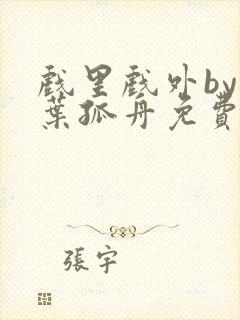 戲里戲外by
葉孤舟免費
張宇